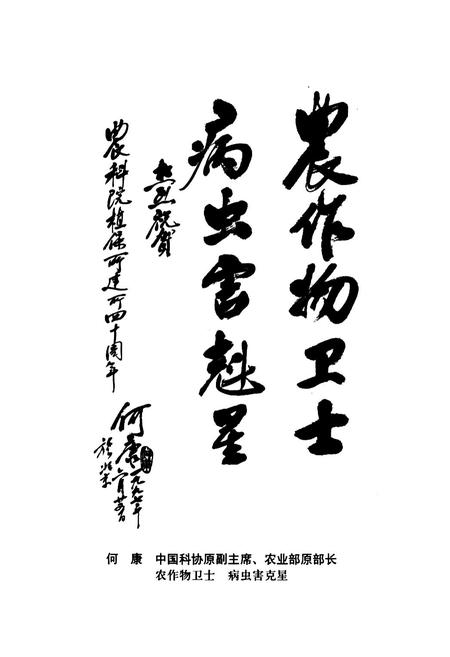 農作物卫士
病虫害尅星
热烈祝賀
農科院植保所建所四十周年
何康
一九九七年
於北京
何　康　中国科协原副主席、农业部原部长
农作物卫士　病虫害克星